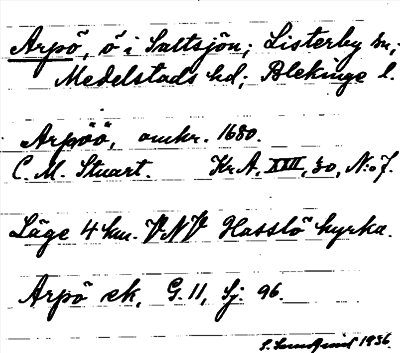 Arpö, ö i Saltsjön; Listerby sn;
Medelstads hd; Blekinge l.
Arpöö, omkr. 1680.
C. M. Stuart. Kr A, XXII, 30, N:o 7.
Läge 4 km. VNV Hasslö kyrka.
Arpö ek, G. 11, Sj. 96.
1936.